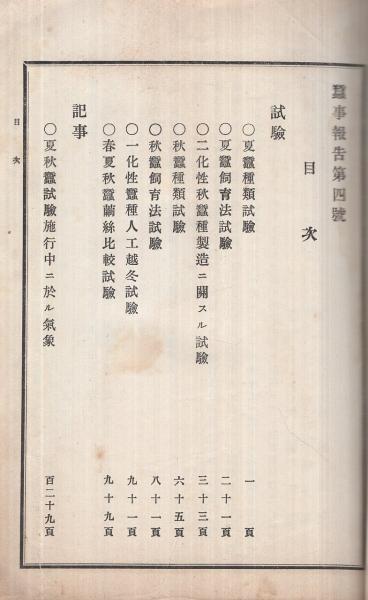 蠶事報告第四號
目次
試驗
〇夏蠶種類試驗 一頁
〇夏蠶飼育法試驗 二十一頁
〇二化性秋蠶種製造ニ關スル試驗 三十三頁
〇秋蠶種類試驗 六十五頁
〇秋蠶飼育法試驗 八十一頁
〇一化性蠶種人工越冬試驗 九十一頁
〇春夏秋蠶繭絲比較試驗 九十九頁
記事
〇夏秋蠶試驗施行中ニ於ル氣象 百二十九頁
目次